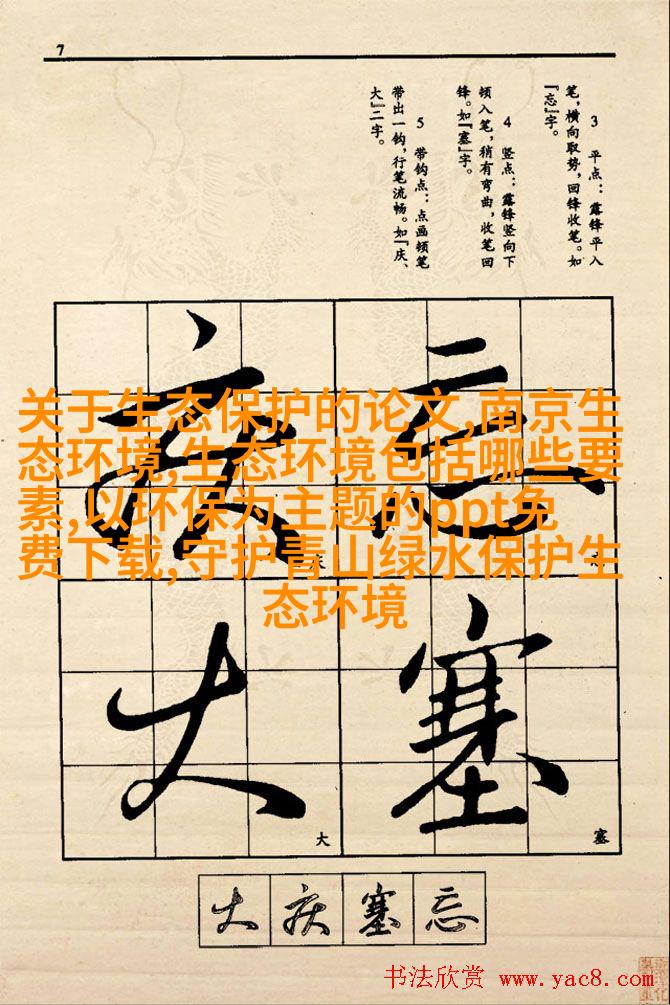 7
3 平点：露锋平入
笔，横向取势，回锋收笔。如
『忘』字。
4 竖点：露锋竖向下
顿入笔，稍有弯曲，收笔回
锋。如『塞』字。
5 带钩点：点画顿笔
带出一钩，行笔流畅。如『庆、
大』二字。
忘
庆
关于生态保护的论文,南京生
态环境,生态环境包括哪些要
素,以环保为主题的ppt免
费下载,守护青山绿水保护生
态环境
忘
庆
塞
大
塞
大
大 庆 塞 忘
书法欣赏 www.yac8.com